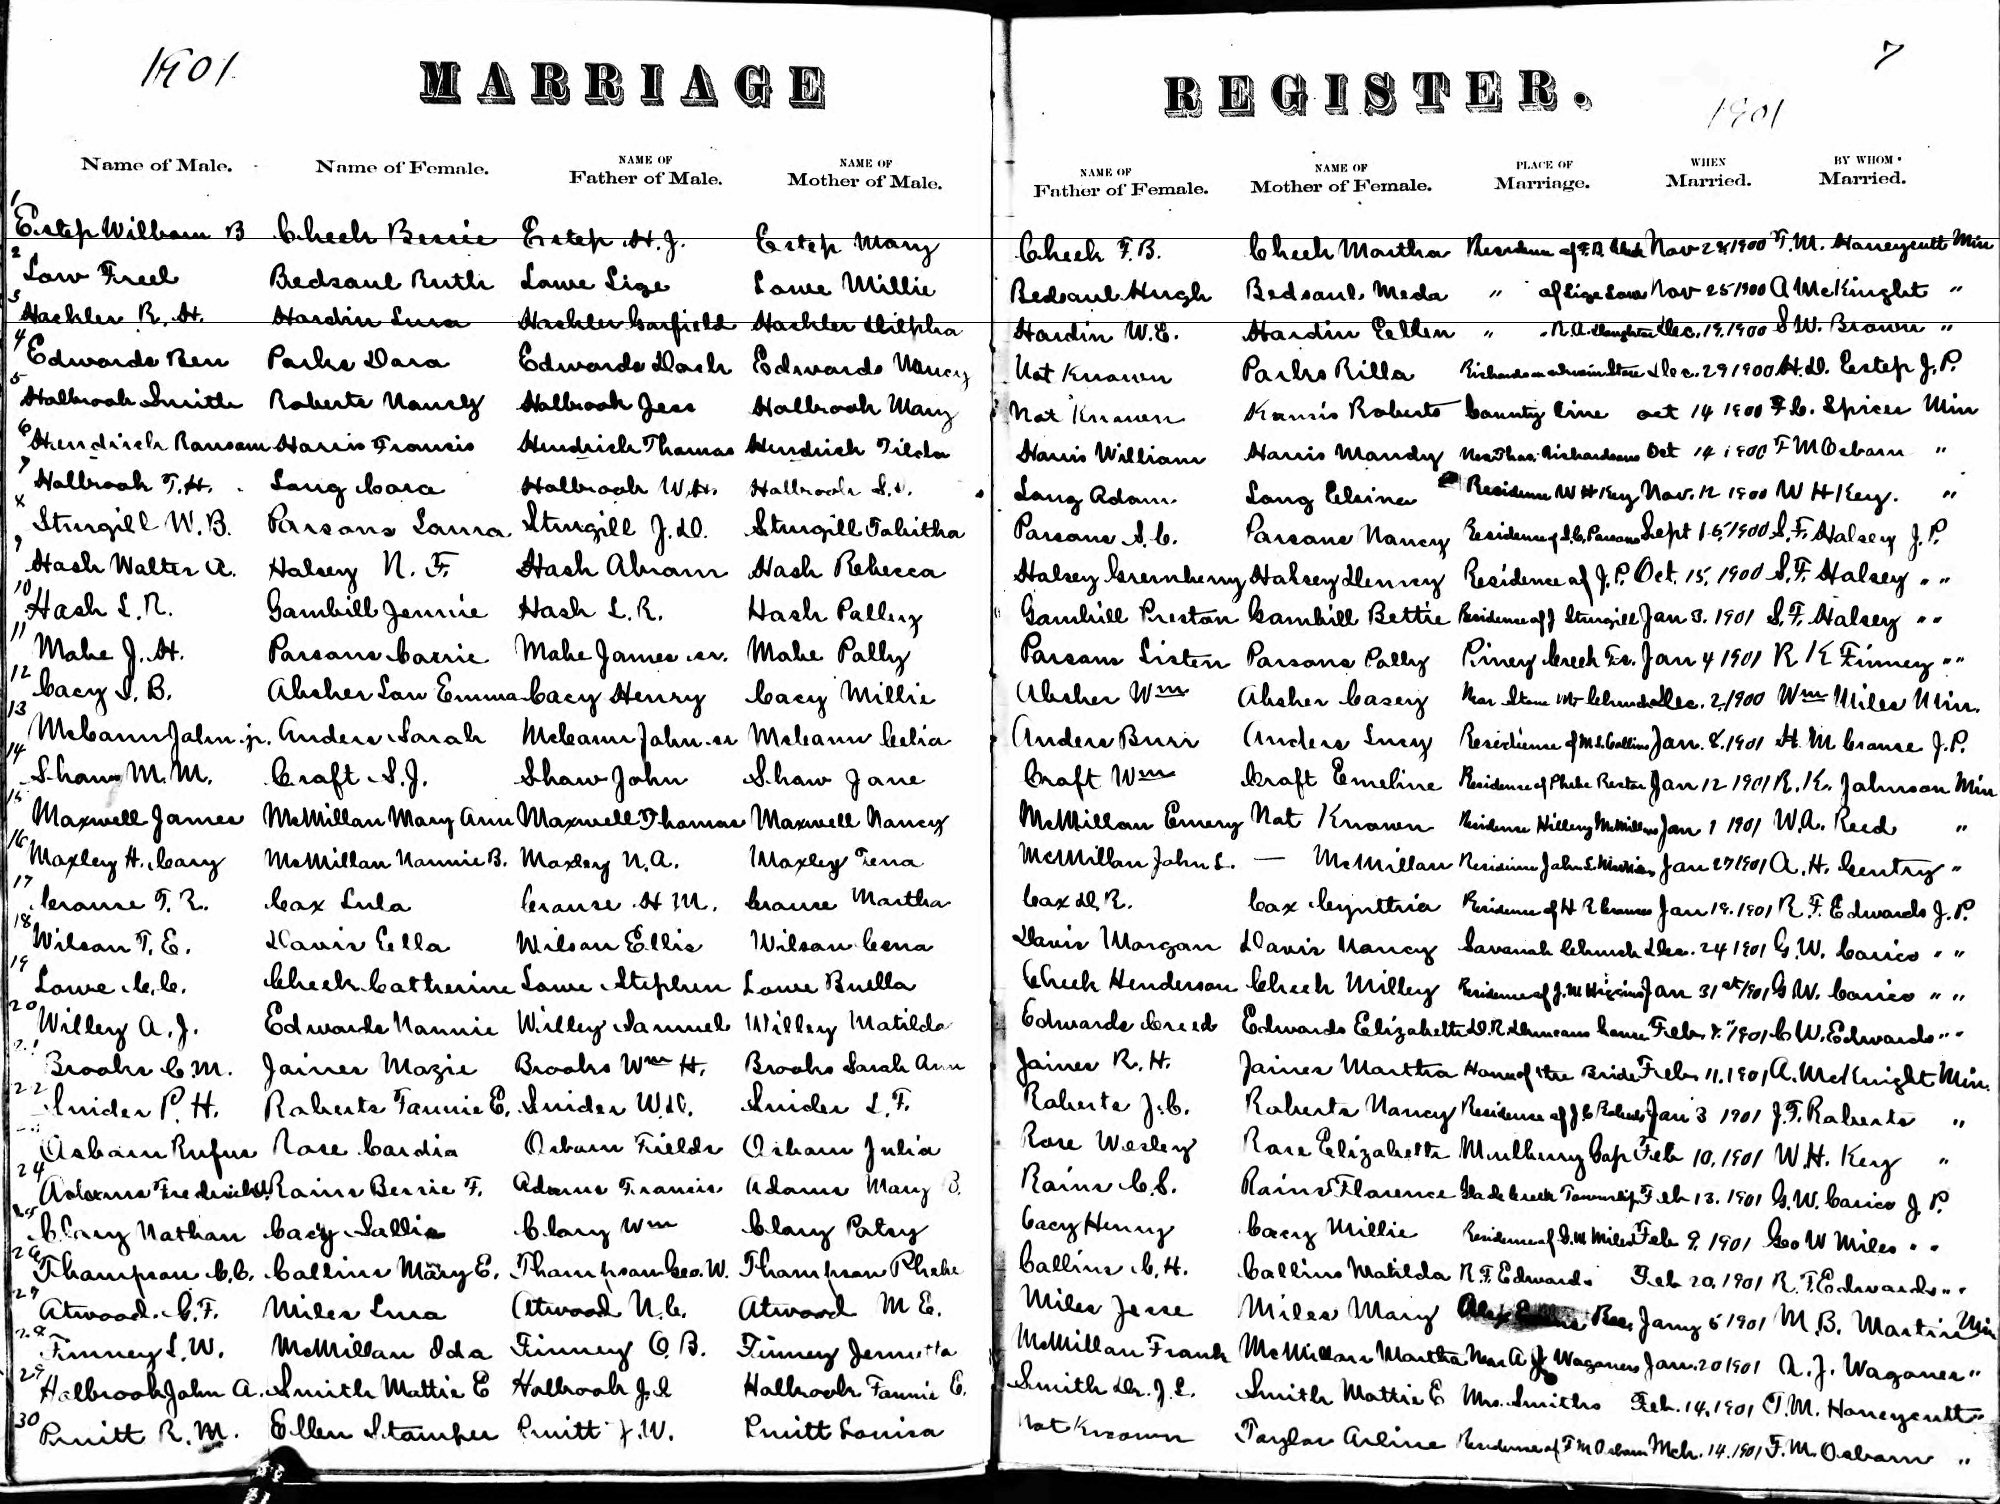 1901
MARRIAGE REGISTER.
7
1901
Name of Male. Name of Female. NAME OF Father of Male. NAME OF Mother of Male. NAME OF Father of Female. NAME OF Mother of Female. PLACE OF Marriage. WHEN Married. BY WHOM Married.
1 Estep William B Cheek Bessie Estep H. J. Estep Mary Cheek F. B. Cheek Martha Residence of F. B. Cheek Nov 28, 1900 T. M. Honeycutt Min
2 Low Freel Bedsaul Ruth Lowe Lige Lowe Millie Bedsaul Hugh Bedsaul Meda " of Lige Lowe Nov 25 1900 A McKinght "
3 Hackler R. H. Hardin Lura Hackler Garfield Hackler Hardin W. E. Hardin Eellen " Dec. 19, 1900 S W. Brown "
4 Edwards Ben Parks Dora Edwards Dock Edwards Nancy Not Known Parks Rilla Store Dec. 29 1900 H. D. Estep J. P.
5 Holbrook Smith Roberts Nancy Holbrook Jess Holbrook Mary Not Known Roberts County Line Oct 14 1900 F. C. Spicer Min
6 Hendrick Ransom Harris Francis Hendrick Thomas Hendrick Tilda Harris William Harris Mandy Near Thos. Richardsons Oct 14 1900 F M Osborn "
7 Holbrook T. H. Long Cora Holbrook W. H. Holbrook S. Long Adam Long Elvina Residence W H Key Nov. 12 1900 W H Key. "
8 Sturgill W. B. Parsons Laura Sturgill J. D. Sturgill Tabitha Parsons S. C. Parsons Nancy Residence of S. C. Parsons Sept 15, 1900 S. F. Halsey J. P.
9 Hash Walter A. Halsey N. F. Hash Abram Hash Rebecca Halsey Greenberry Halsey Denny Residence of J. P. Oct. 15, 1900 S. F. Halsey " "
10 Hash L. R. Gambill Jennie Hash L. R. Hash Polley Gambill Preston Gambill Bettie Residence of J Sturgill Jan 3. 1901 S. F. Halsey " "
11 Mabe J. H. Parsons Carrie Mabe James sr. Mabe Polly Parsons Listen Parsons Polly Piney Creek Ts. Jan 4 1901 R K Finney " "
12 Cacy I. B. Absher Lou Emma Cacy Henry Cacy Millie Absher Wm Absher Casey Near Stone Mt Church Dec. 2, 1900 Wm Miles Min.
13 McCann John jr. Anders Sarah McCann John sr McCann Celia Anders Burr Anders Lucy Residience of M. L. Collins Jan. 8. 1901 H. M Crouse J. P.
14 Shaw M. M. Craft S. J. Shaw John Shaw Jane Craft Wm Craft Emeline Residence of Phebe Rector Jan 12 1901 R. K. Johnson Min
15 Maxwell James McMillan Mary Ann Maxwell Thomas Maxwell Nancy McMillan Emery Not Known Residence Hillery McMillans Jan 1 1901 W. A. Reed "
16 Moxley H. Cary McMillan Nannie B. Moxley N. A. Moxley Tena McMillan John L. — McMillan Residence John L. McMillan Jan 27 1901 A. H. Gentry "
17 Crouse T. R. Cox Lula Crouse H M. Crouse Martha Cox D. R. Cox Cynthia Residence of H R Crouses Jan 19. 1901 R. F. Edwards J. P.
18 Wilson T. E. Davis Eella Wilson Ellis Wilson Cena Davis Morgan Davis Nancy Savanah Church Dec. 24 1901 G. W. Carico " "
19 Lowe C. C. Cheek Catherine Lowe Stephen Lowe Buella Cheek Henderson Cheek Milley Residence of J. M Higgins Jan 31st 1901 G W. Carico " "
20 Willey A. J. Edwards Nannie Willey Samuel Willey Matilda Edwards Creed Edwards Elizabeth D. R. Duncans house Feb. 1901 C W. Edwards " "
21 Brooks C. M. Joines Mazie Brooks Wm H. Brooks Sarah Ann Joines R. H. Joines Martha Home of the Bride Feb 11. 1901 A. McKnight Min.
22 Snider P. H. Roberts Fannie E. Snider W. D. Snider L. F. Roberts J. C. Roberts Nancy Residence of J. C Roberts Jan 3 1901 J. F. Roberts "
Osborn Rufus Rose Cordia Osborn Fields Osborn Julia Rose Wesley Rose Elizabeth Mulberry Gap Feb 10, 1901 W. H. Key "
24 Adams Frederick Rains Bessie F. Adams Francis Adams Mary B. Rains C. S. Rains Florence Glade Creek Township Feb 13. 1901 G. W. Carico J P.
25 Clary Nathan Cacy Sallie Clary Wm Clary Patsy Cacy Henry Cacy Millie Residence of I. W Miles Feb 9, 1901 Geo W Miles " "
26 Thompson C. C. Collins Mary E. Thompson Geo. W. Thompson Phebe Collins C. H. Collins Matilda R. F. Edwards Feb 20, 1901 R. F. Edwards " "
27 Atwood G. F. Miles Lura Atwood N. C. Atwood M E. Miles Jesse Miles Mary Res. Jany 5 1901 M. B. Martin Min
28 Finney L. W. McMillan Ida Finney O. B. Finney Jennetta McMillan Frank McMillan Martha Near A. J. Wagoners Jan. 20 1901 A. J. Wagoner "
29 Holbrook John A. Smith Mattie E Holbrook J. I Holbrook Fannie E. Smith Dr. J. L. Smith Mattie E Mrs. Smiths Feb. 14, 1901 T. M. Honeycutt "
30 Pruitt R. M. Ellen Stamper Pruitt J. W. Pruitt Louisa Not Known Taylor Arline Residence of F M Osborn Mch. 14. 1901 F. M. Osborn "